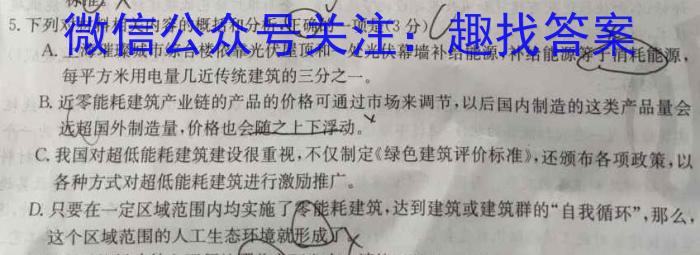 标准。
5.下列对材料相关内容的概括和分析,正确的一项是(3分)
微信公众号关注：趣找答案
A.上海璀璨城市综合楼依靠光伏屋顶和一处光伏幕墙补给能源,补给能源等于消耗能源,
每平方米用电量几近传统建筑的三分之一。
B.近零能耗建筑产业链的产品的价格可通过市场来调节,以后国内制造的这类产品量会
远超国外制造量,价格也会随之上下浮动。
C.我国对超低能耗建筑建设很重视,不仅制定《绿色建筑评价标准》,还颁布各项政策,以
各种方式对超低能耗建筑进行激励推广。
D.只要在一定区域范围内均实施了零能耗建筑,达到建筑或建筑群的“自我循环”,那么,
这个区域范围的人工生态环境就形成了。